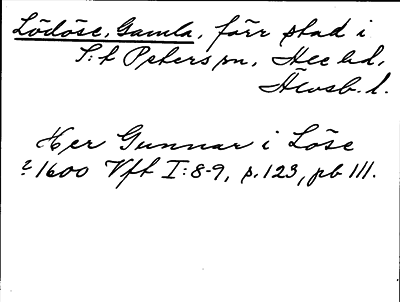 Lödöse, Gamla, förr stad i
S:t Peters sn, Ale hd,
Älvsb. l.
Her Gunnar i Löse
? 1600 Vft I:8-9, s. 123, pb III.